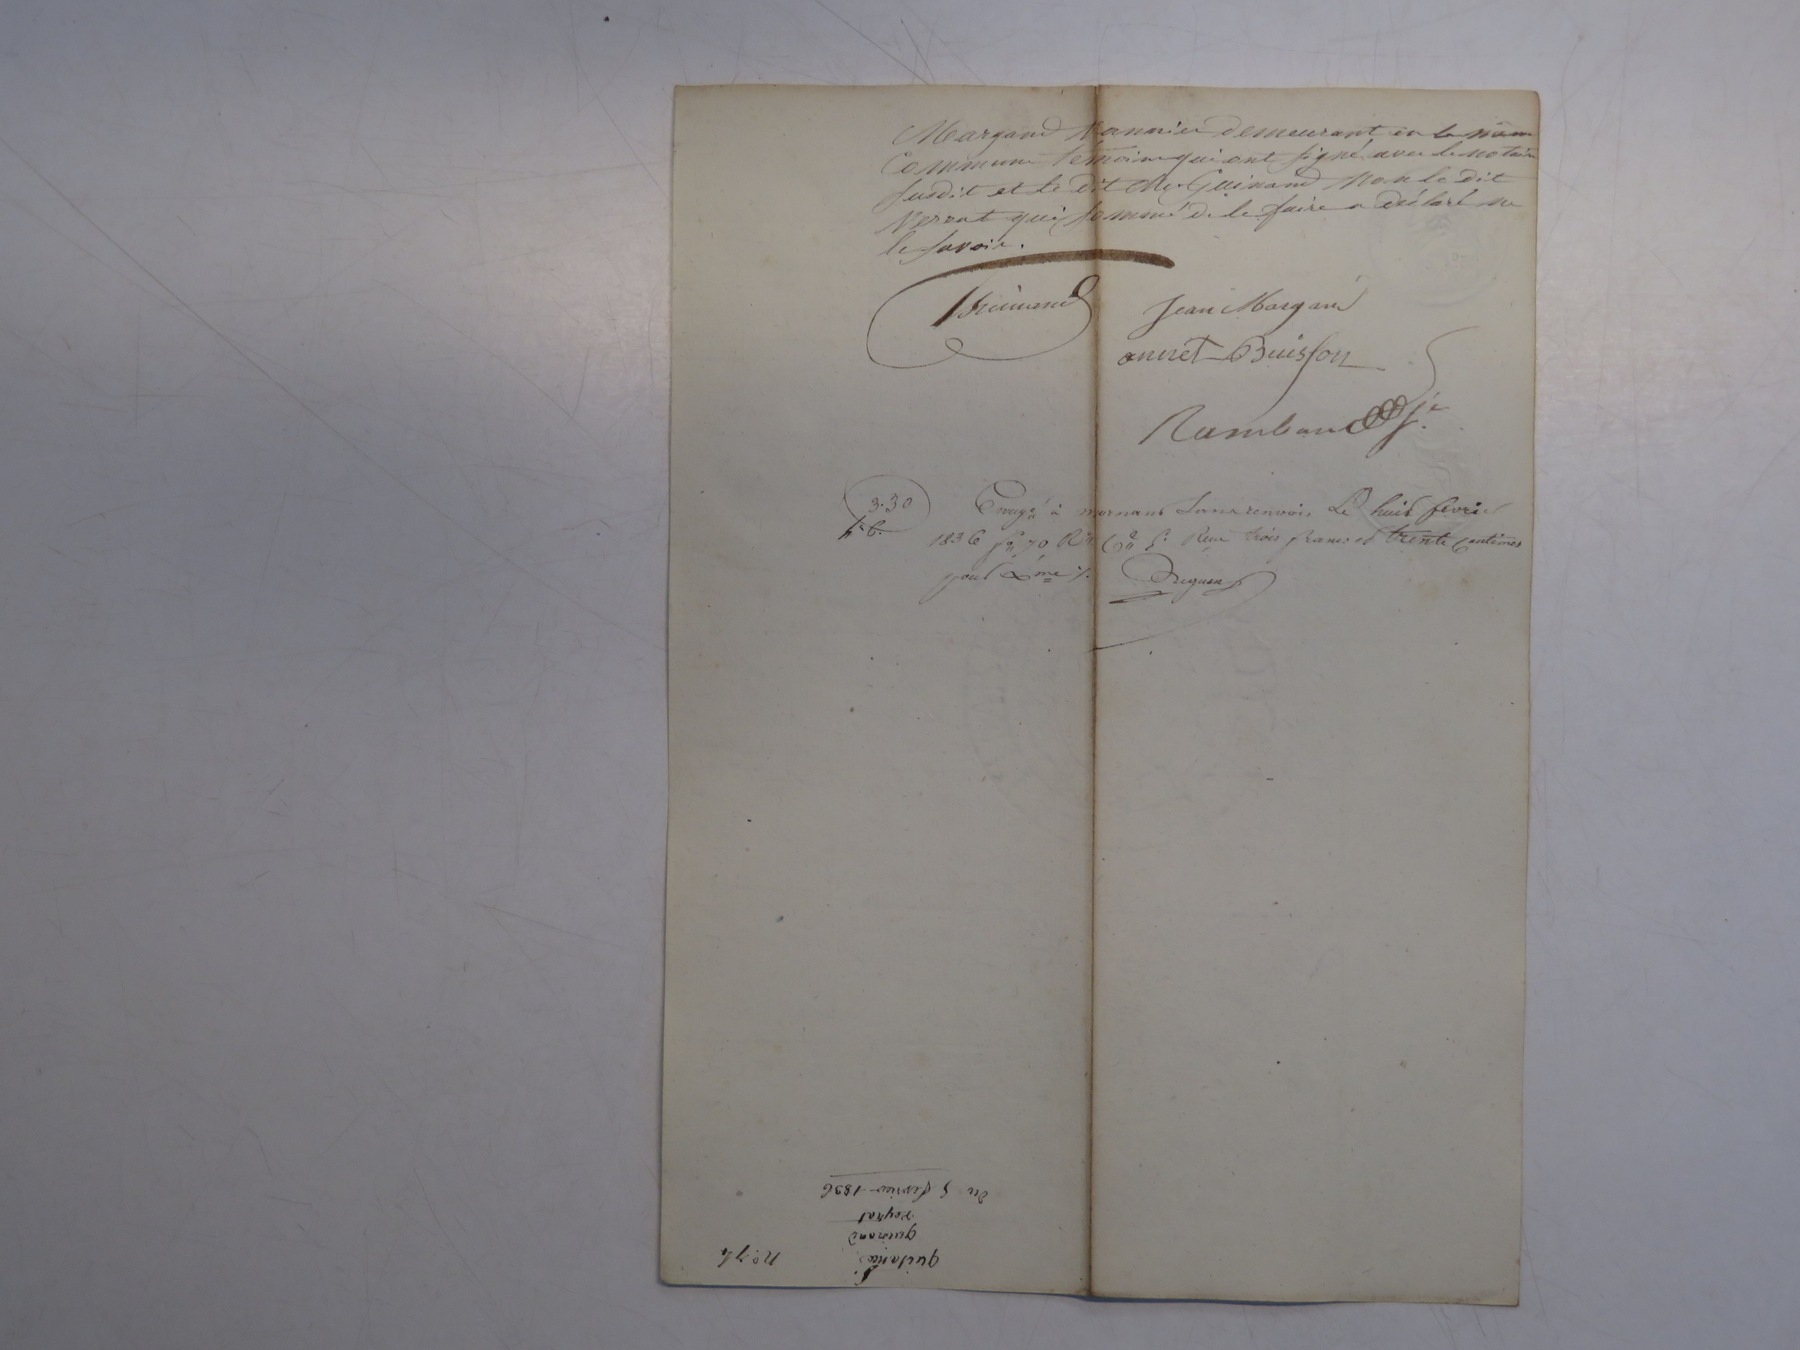 Margand Vannier demeurant en la même
Commune témoins qui ont signé avec le notaire
susdit et le dit Me Guinand non le dit
qui sommé de le faire a déclaré ne
le savoir.
Guinand
Jean Margand
Buisson
Rambaud Je
3.30
Enregé à mornant sans renvoi Le huit fevrier
1836 fo 70 Ro Ce Reçu trois francs et trente Centimes
pour Xme
quitance
guinand
Du 5 fevrier 1836